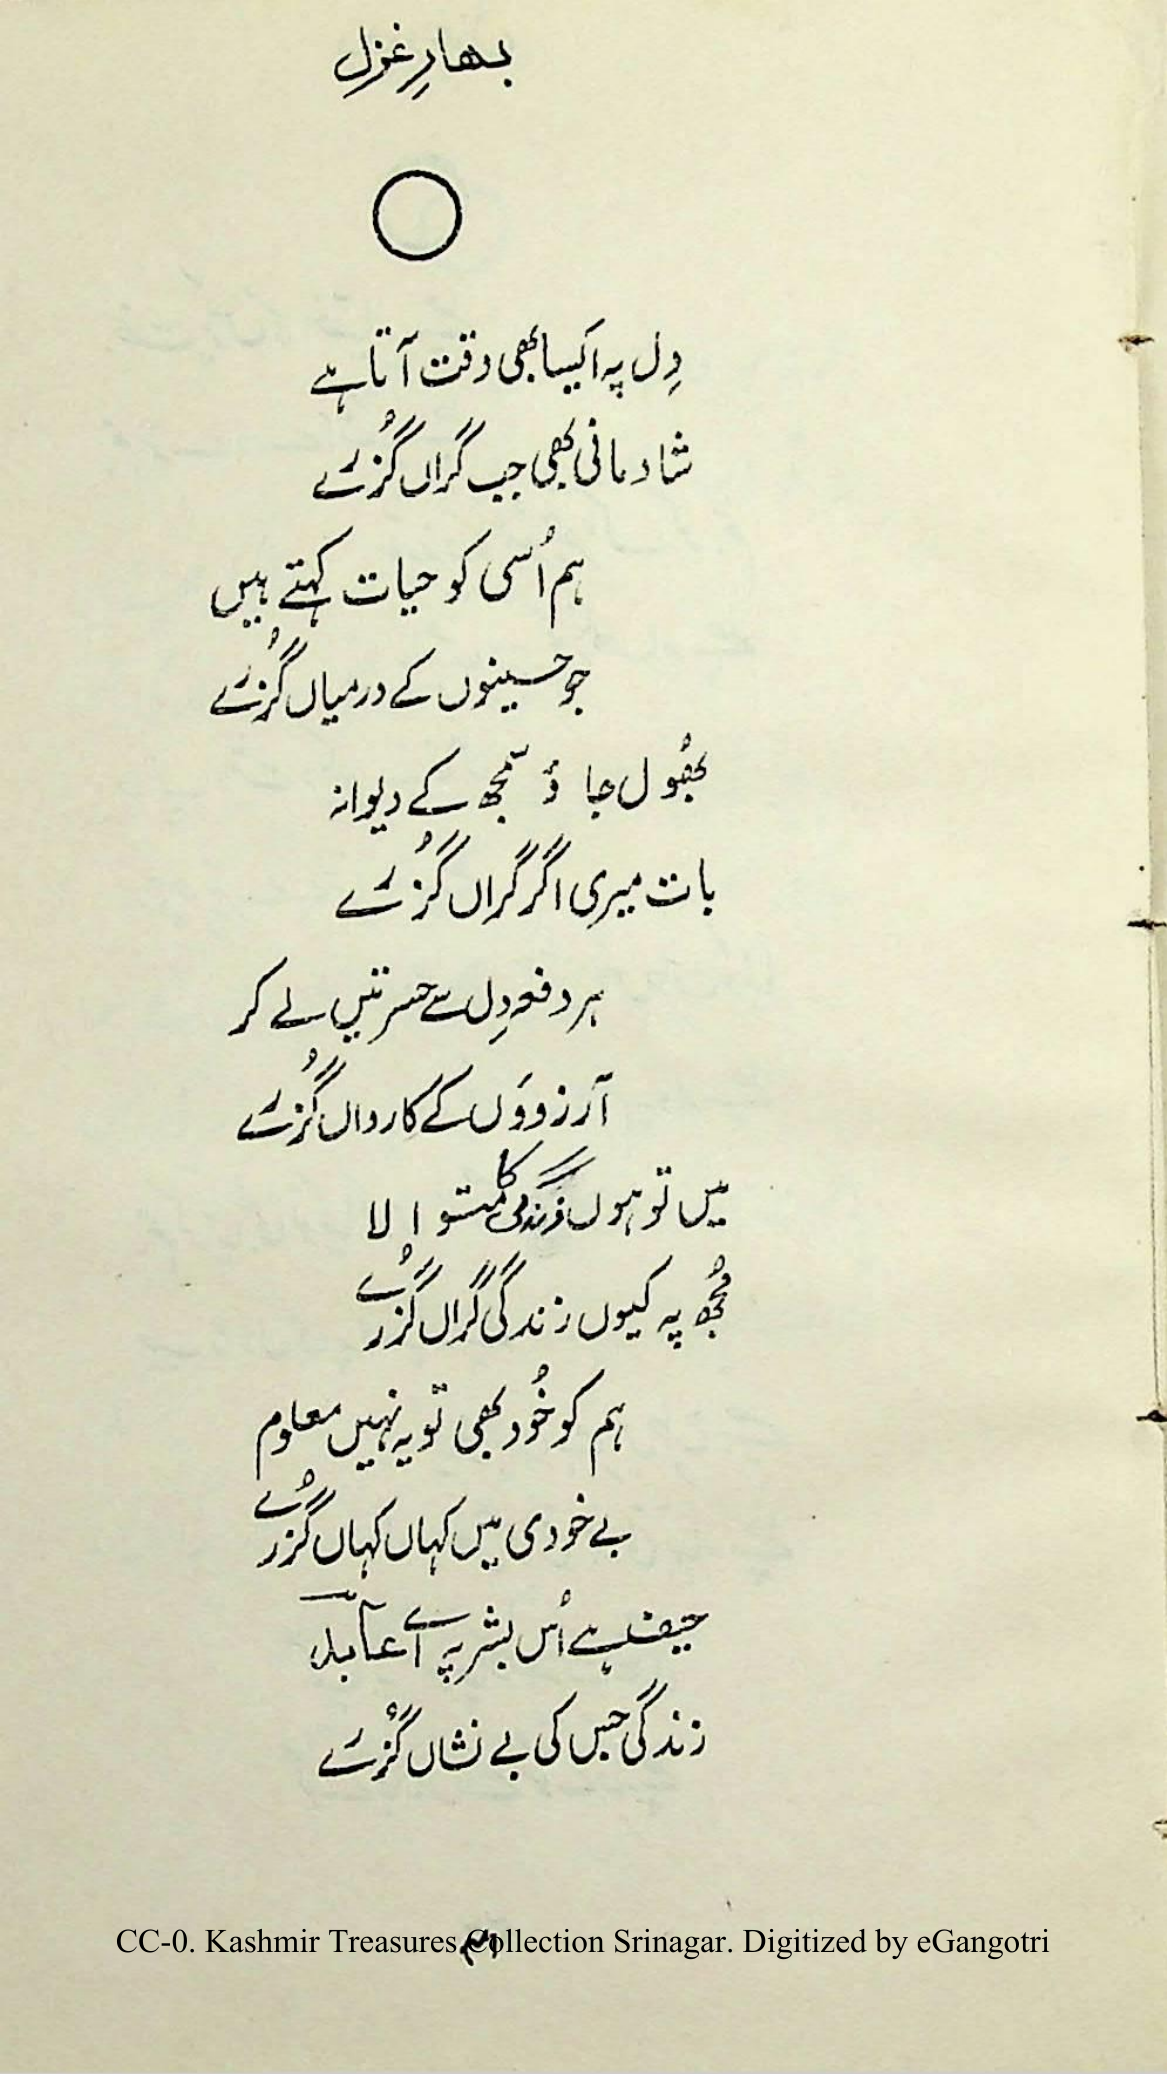 بہارِ غزل
دِل پہ ایسا بھی وقت آتا ہے
شادمانی بھی جب گراں گُزرے
ہم اُسی کو حیات کہتے ہیں
جو حسینوں کے درمیاں گُزرے
بھُول جاؤ سمجھ کے دیوانہ
بات میری اگر گراں گُزرے
ہر دفعہ دِل سے حسرتیں لے کر
آرزووَں کے کارواں گُزرے
میں تو ہوں زندگی کا متوالا
مُجھ پہ کیوں زندگی گراں گُزرے
ہم کو خُود بھی تو یہ نہیں معلوم
بے خودی میں کہاں کہاں گُزرے
حیف ہے اُس بشر پہ اے عابد
زندگی جس کی بے نشاں گُزرے
CC-0. Kashmir Treasures Collection Srinagar. Digitized by eGangotri